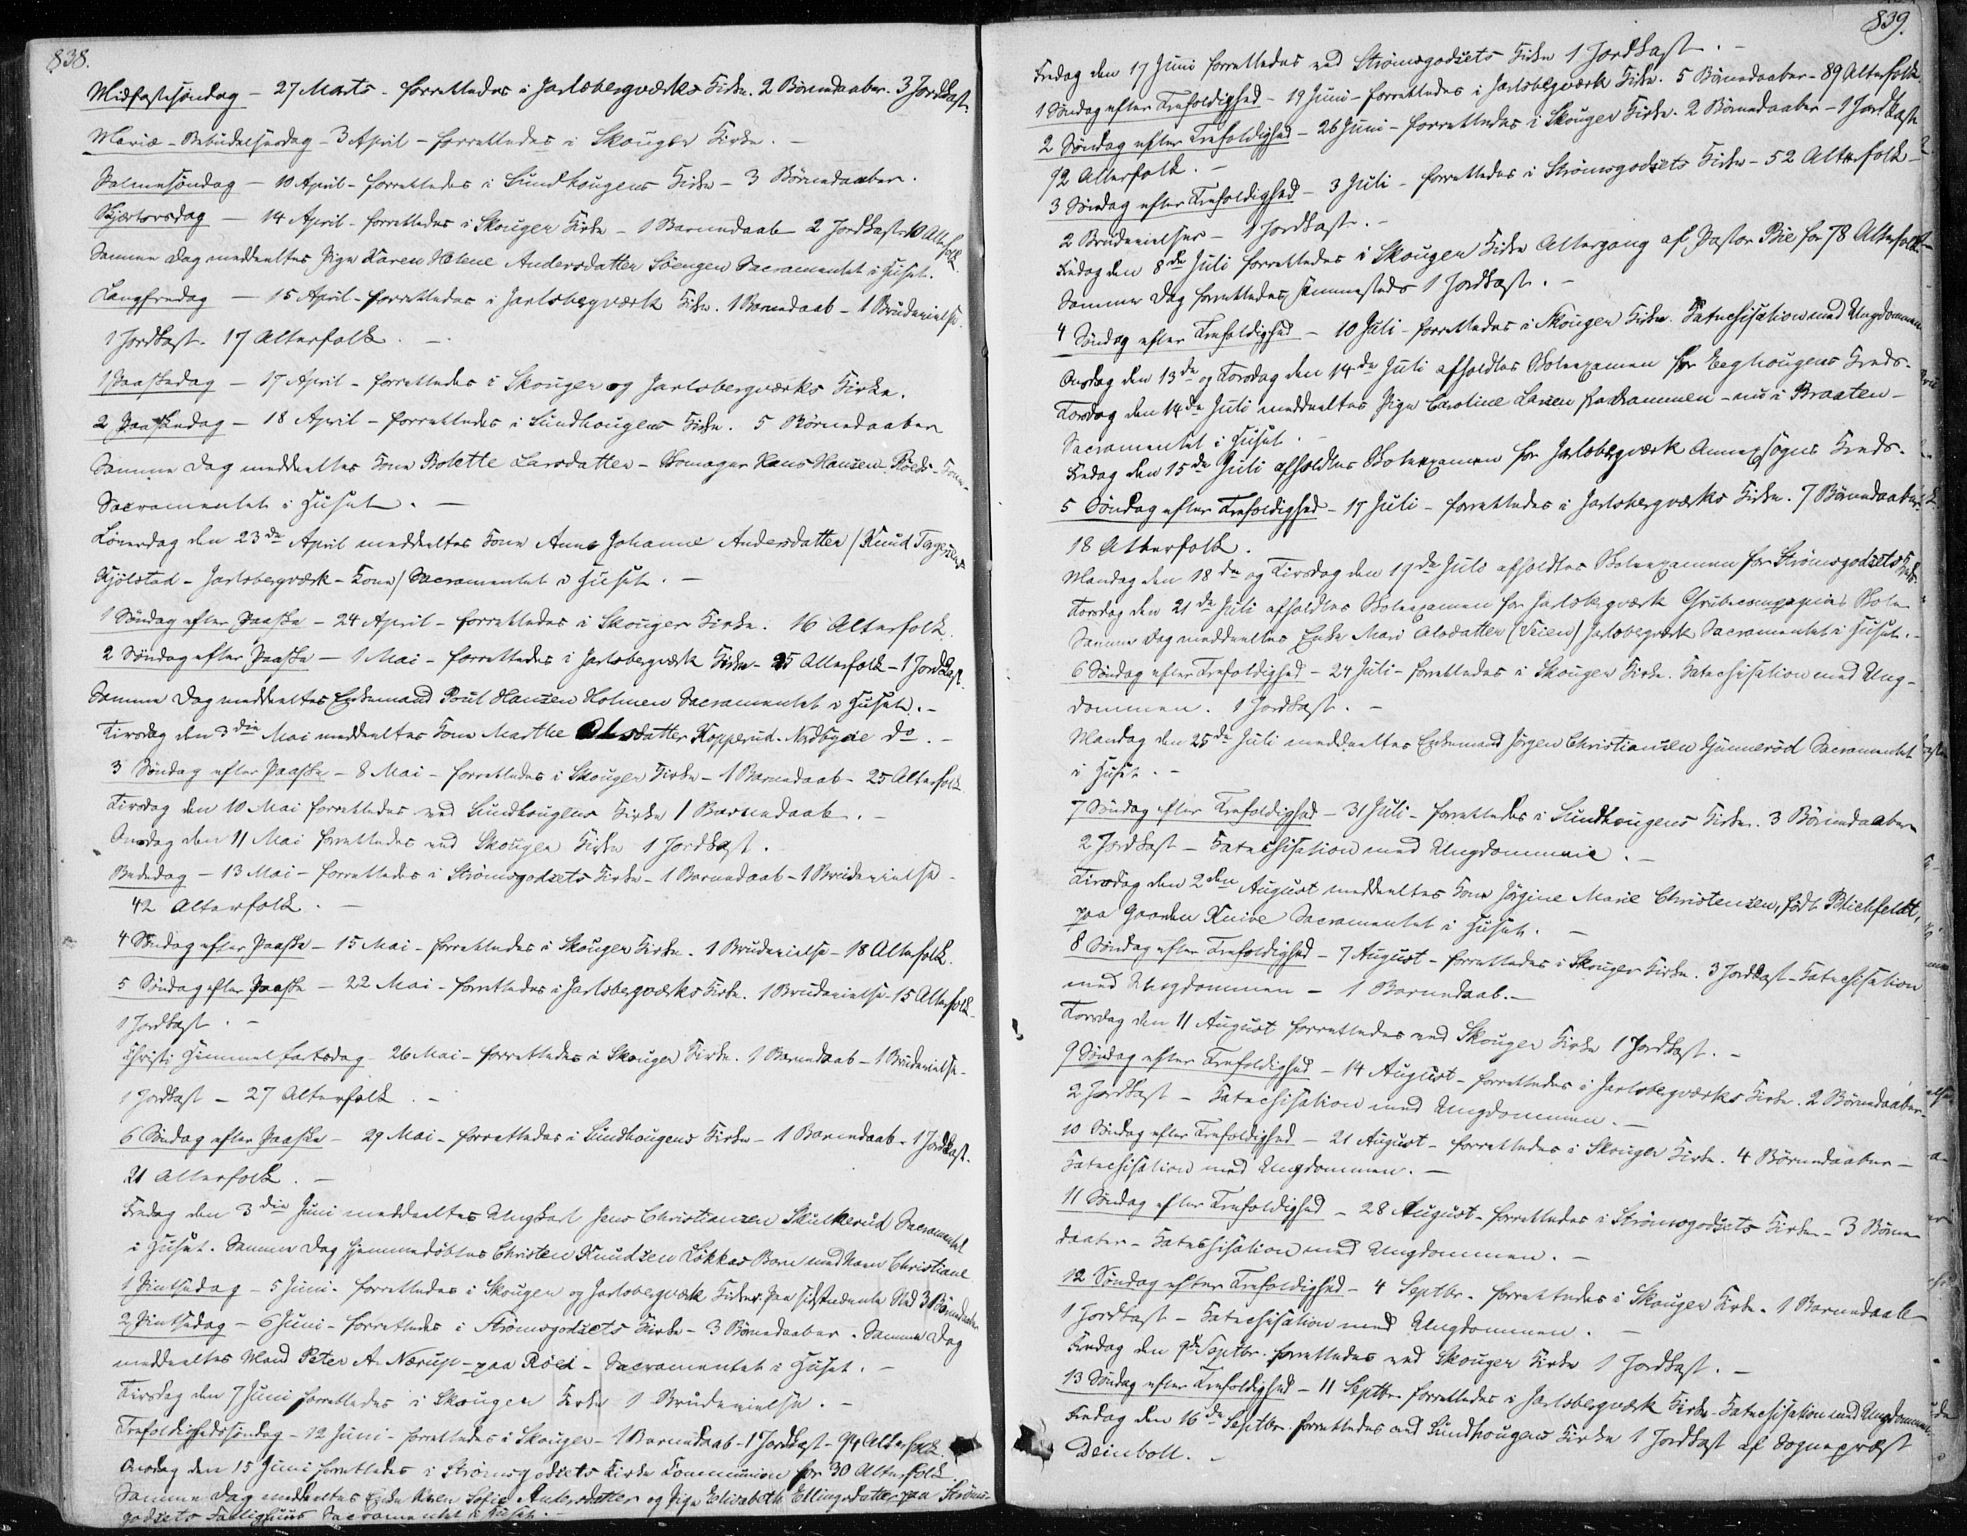 838.
Midfastesøndag – 27 Marts – forrettedes i Jarlsbergværks Kirke. 2 Børnedaaber. 3 Jordkast.
Mariæ-Bebudelsesdag – 3 April – forrettedes i Skouger Kirke. –
Palmesøndag – 10 April – forrettedes i Sundhougens Kirke – 3 Børnedaaber.
Skjærtorsdag – 14 April – forrettedes i Skouger Kirke – 1 Barnedaab 2 Jordkast 10 Alterfolk.
Samme Dag meddeeltes Pige Karen Helene Andersdatter Söengen Sacramentet i Huset.
Langfredag – 15 April – forrettedes i Jarlsbergværk Kirke. 1 Barnedaab – 1 Brudevielse.
1 Jordkast. 17 Alterfolk. –
1 Paaskedag – 17 April – forrettedes i Skouger og Jarlsbergværks Kirke.
2 Paaskedag – 18 April – forrettedes i Sundhougens Kirke. 5 Børnedaaber
Samme Dag meddeeltes Kone Bolette Larsdatter – Skomager Hans Hansen Röeds Kone –
Sacramentet i Huset. –
Löverdag den 23de April meddeeltes Kone Anne Johanne Andersdatter /Knud Tergersens
Kjölstad – Jarlsbergværk – Kone/ Sacramentet i Huset. –
1 Søndag efter Paaske – 24 April – forrettedes i Skouger Kirke. 16 Alterfolk.
2 Søndag efter Paaske – 1 Mai – forrettedes i Jarlsbergværk Kirke – 25 Alterfolk – 1 Jordkast.
Samme Dag meddeeltes Enkemand Poul Hansen Holmen Sacramentet i Huset. –
Tirsdag den 3die Mai meddeeltes Kone Marthe Olsdatter Kopperud – Nedbyde do. –
3 Søndag efter Paaske – 8 Mai – forrettedes i Skouger Kirke – 1 Barnedaab – 25 Alterfolk
Tirsdag den 10 Mai forrettedes ved Sundhougens Kirke 1 Barnedaab. –
Onsdag den 11 Mai forrettedes ved Skouger Kirke 1 Jordkast.
Bededag – 13 Mai – forrettedes i Strömsgodsets Kirke – 1 Barnedaab – 1 Brudevielse –
42 Alterfolk. –
4 Søndag efter Paaske – 15 Mai – forrettedes i Skouger Kirke. 1 Brudevielse – 18 Alterfolk.
5 Søndag efter Paaske – 22 Mai – forrettedes i Jarlsbergværks Kirke. 1 Brudevielse – 15 Alterfolk –
1 Jordkast. –
Christi Himmelfartsdag 26 Mai – forrettedes i Skouger Kirke. 1 Barnedaab – 1 Brudevielse –
1 Jordkast – 27 Alterfolk. –
6 Søndag efter Paaske – 29 Mai – forrettedes i Sundhougens Kirke – 1 Barnedaab – 1 Jordkast.
21 Alterfolk. –
Fredag den 3die Juni meddeeltes Ungkarl Jens Christiansen Skulkerud Sacramentet
i Huset. Samme Dag hjemmedöbtes Christen Knudsen Lökkas Barn med Navn Christiane
1 Pintsedag – 5 Juni – forrettedes i Skouger og Jarlsbergværk Kirker. Paa sidstnævnte Sted 3 Børnedaaber
2 Pintsedag – 6 Juni – forrettedes i Strömsgodsets Kirke – 3 Børnedaaber. Samme Dag
meddeeltes Mand Peter A. Nærup – paa Röed – Sacramentet i Huset. –
Tirsdag den 7 Juni forrettedes i Skouger Kirke 1 Brudevielse. –
Trefoldighedssöndag – 12 Juni – forrettedes i Skouger – 1 Barnedaab – 1 Jordkast – 94 Alterfolk
Onsdag den 15 Juni forrettedes i Strömsgodsets Kirke Communion for 30 Alterfolk.
Samme Dag meddeeltes Enke Karen Sofie Andersdatter og Pige Elisabeth Ellingsdatter paa Ströms-
godsets Fattighuus Sacramentet i Huset. –
839.
Fredag den 17 Juni forrettedes ved Strömsgodsets Kirke 1 Jordkast. –
1 Søndag efter Trefoldighed – 19 Juni – forrettedes i Jarlsbergværk Kirke. 5 Børnedaaber – 89 Alterfolk
2 Søndag efter Trefoldighed – 26 Juni – forrettedes i Skouger Kirke. 2 Børnedaaber – 1 Jordkast
72 Alterfolk. –
3 Søndag efter Trefoldighed – 3 Juli – forrettedes i Strömsgodsets Kirke – 52 Alterfolk –
2 Brudevielser – 1 Jordkast. –
Fredag den 8de Juli forrettedes i Skouger Kirke Altergang af Pastor Bie for 78 Alterfolk –
Samme Dag forrettedes sammesteds 1 Jordkast. –
4 Søndag efter Trefoldighed – 10 Juli – forrettedes i Skouger Kirke. Katechisation med Ungdommen.
Onsdag den 13de og Torsdag den 14de Juli afholdtes Skoleexamen for Eeghougens Kreds.
Torsdag den 14de Juli meddeeltes Pige Caroline Larsen fra Drammen – nu i Braaten –
Sacramentet i Huset.
Fredag den 15de Juli afholdtes Skoleexamen for Jarlsbergværk Annexsogns Kreds.
5 Søndag efter Trefoldighed – 17 Juli – forrettedes i Jarlsbergværks Kirke. 7 Børnedaaber.
18 Alterfolk.
Mandag den 18de og Tirsdag den 19de Juli afholdtes Skoleexamen for Strömsgodsets Kreds.
Torsdag den 21de Juli afholdtes Skoleexamen for Jarlsbergværk Grubecompagnies Skole
Samme Dag meddeeltes Enke Mari Olsdatter (Veien) Jarlsbergværk Sacramentet i Huset. –
6 Søndag efter Trefoldighed – 24 Juli – forrettedes i Skouger Kirke. Katechisation med Ung-
dommen. 1 Jordkast. –
Mandag den 25de Juli meddeeltes Enkemand Jörgen Christiansen Gunneröd Sacramentet
i Huset. –
7 Søndag efter Trefoldighed – 31 Juli – forrettedes i Sundhougens Kirke. 3 Børnedaaber
2 Jordkast – Katechisation med Ungdommen. –
Tirsdag den 2den August meddeeltes Kone Jörgine Marie Christensen, födt Blichfeldt,
paa Gaarden Knive Sacramentet i Huset. –
8 Søndag efter Trefoldighed – 7 August – forrettedes i Skouger Kirke. 3 Jordkast – Katechisation
med Ungdommen – 1 Barnedaab. –
Torsdag den 11 August forrettedes ved Skouger Kirke 1 Jordkast. –
9 Søndag efter Trefoldighed – 14 August – forrettedes i Jarlsbergværks Kirke. 2 Børnedaaber –
2 Jordkast – Katechisation med Ungdommen. –
10 Søndag efter Trefoldighed – 21 August – forrettedes i Skouger Kirke. 4 Børnedaaber –
Katechisation med Ungdommen. –
11 Søndag efter Trefoldighed – 28 August – forrettedes i Strömsgodsets Kirke – 3 Børne-
daaber – Katechisation med Ungdommen. –
12 Søndag efter Trefoldighed – 4 Septbr. – forrettedes i Skouger Kirke – 1 Barnedaab –
1 Jordkast – Katechisation med Ungdommen. –
Fredag den 9de Septbr. forrettedes ved Skouger Kirke 1 Jordkast. –
13 Søndag efter Trefoldighed – 11 Septbr. forrettedes i Jarlsbergværk Kirke – Katechisation med Ungdommen
Fredag den 16de Septbr. forrettedes ved Sundhougens Kirke 1 Jordkast af Sognepræst
Deinboll. –